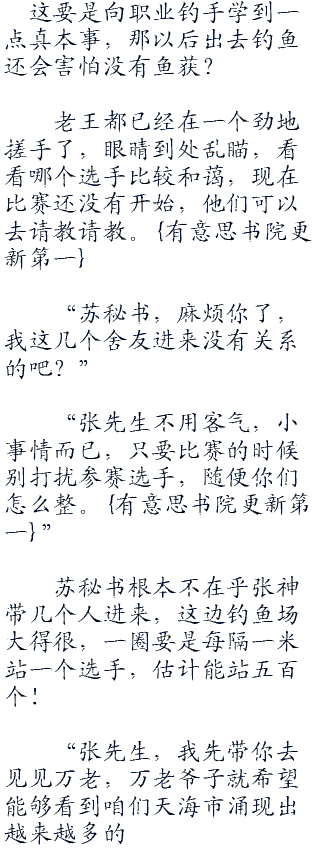 这要是向职业钓手学到一
点真本事，那以后出去钓鱼
还会害怕没有鱼获？
老王都已经在一个劲地
搓手了，眼睛到处乱瞄，看
看哪个选手比较和蔼，现在
比赛还没有开始，他们可以
去请教请教。{有意思书院更
新第一}
“苏秘书，麻烦你了，
我这几个舍友进来没有关系
的吧？”
“张先生不用客气，小
事情而已，只要比赛的时候
别打扰参赛选手，随便你们
怎么整。{有意思书院更新第
一}”
苏秘书根本不在乎张神
带几个人进来，这边钓鱼场
大得很，一圈要是每隔一米
站一个选手，估计能站五百
个！
“张先生，我先带你去
见见万老，万老爷子就希望
能够看到咱们天海市涌现出
越来越多的